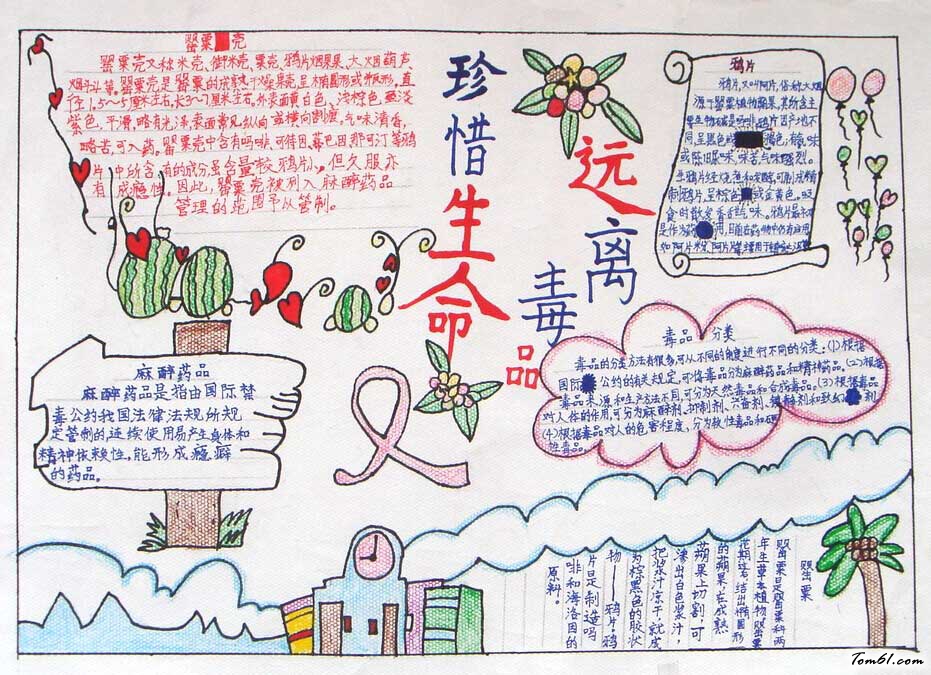 罂粟壳
罂粟壳又称米壳、御米壳、粟壳、鸦片烟果果、大烟葫芦、
烟斗斗等。罂粟壳是罂粟的成熟干燥果壳,呈椭圆形或瓶形,直
径1.5~5厘米左右,长3~7厘米左右。外表面黄白色、浅棕色至淡
紫色,平滑,略有光泽,表面常见纵向或横向割痕,气味清香,
略苦,可入药。罂粟壳中含有吗啡、可待因、蒂巴因、那可汀等鸦
片中所含有的成分,虽含量较鸦片小,但久服亦
有成瘾性。因此,罂粟壳被列入麻醉药品
管理的范围予以管制。
珍惜生命
远离毒品
鸦片
鸦片,又叫阿片,俗称大烟,
源于罂粟植物蒴果,其所含主
要生物碱是吗啡。鸦片因产地不
同,呈黑色或褐色,有氨味
或陈旧尿味,味苦,气味强烈。
生鸦片经烧煮和发酵,可制成精
制鸦片,呈棕色或金黄色。吸
食时散发香甜气味。鸦片最初
是作为药用,目前在药物中仍有应用,
如阿片粉、阿片
麻醉药品
麻醉药品是指由国际禁
毒公约我国法律法规所规
定管制的连续使用易产生身体和
精神依赖性,能形成瘾癖
的药品。
毒品分类
毒品的分类方法有很多,可从不同的角度进行不同的分类:(1)根据
国际公约的有关规定,可将毒品分为麻醉药品和精神药品。(2)根据
毒品来源和生产方法不同,可分为天然毒品和合成毒品。(3)根据毒品
对人体的作用,可分为麻醉剂、抑制剂、兴奋剂、镇静剂和致幻剂
(4)根据毒品对人的危害程度,分为软性毒品和硬
性毒品。
罂粟
罂粟是罂粟科两
年生草本植物,罂粟
花期过后,结出椭圆形
的蒴果,在成熟
蒴果上切割,可
渗出白色浆汁,
把浆汁凉干,就成
为棕黑色的胶状
物——鸦片,鸦
片是制造吗
啡和海洛因的
原料。
Tom61.com